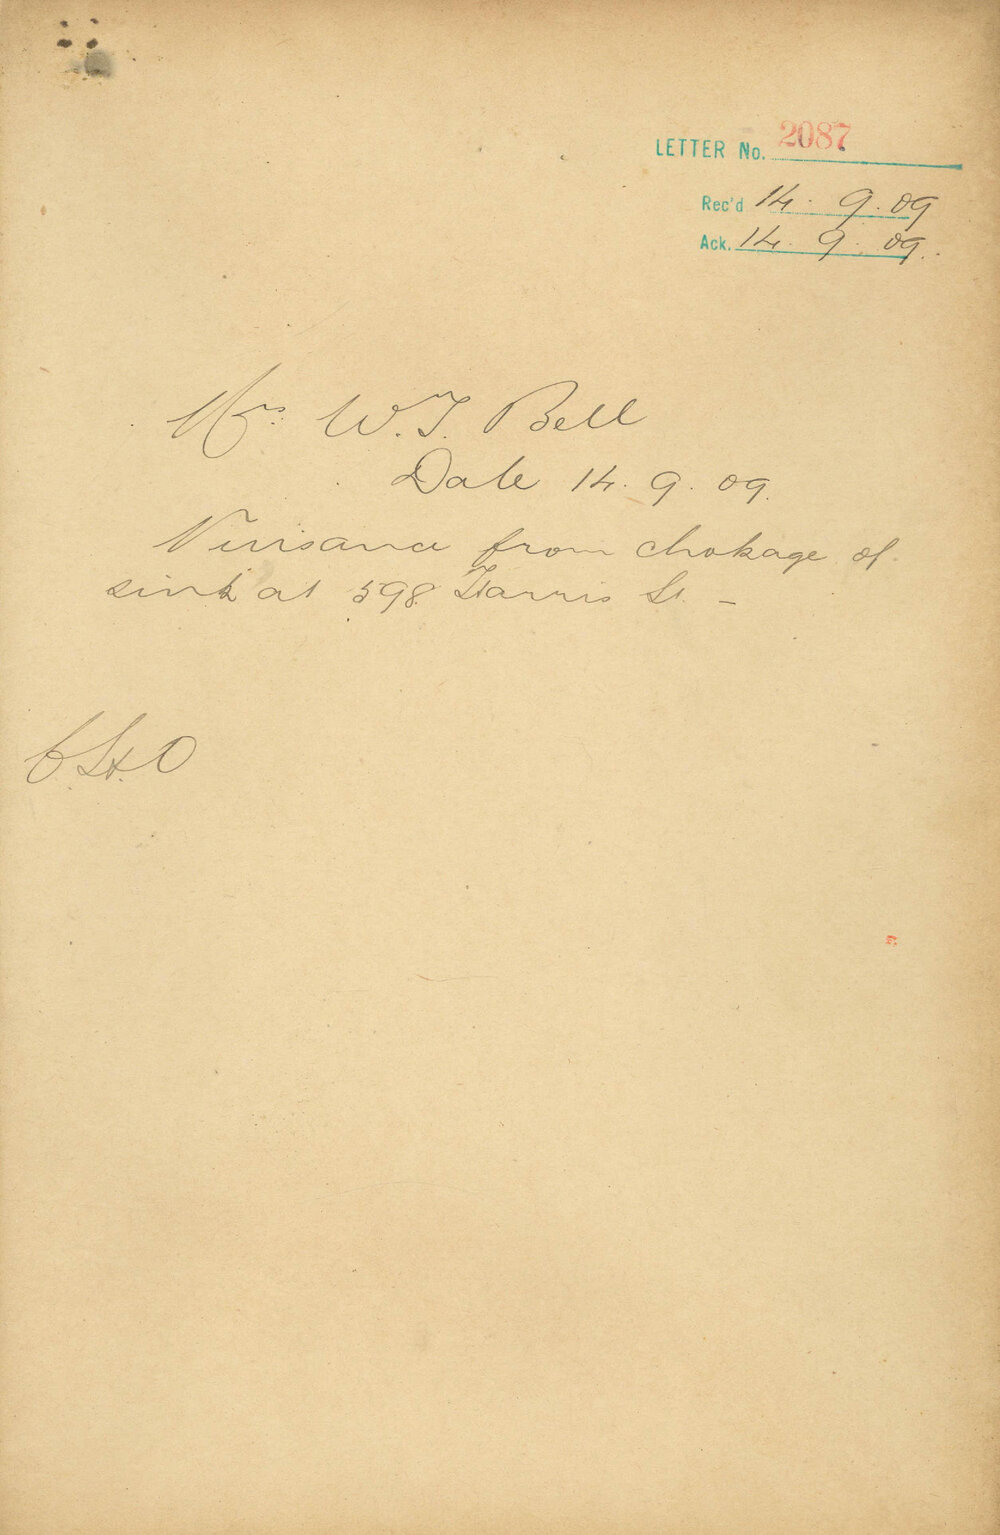 LETTER No. 2087
Rec'd 14. 9. 09
Ack. 14. 9. 09.
Mrs. W. T. Bell
Date 14. 9. 09.
Nuisance from chokage of
sink at 598 Harris St. –
C.H.O